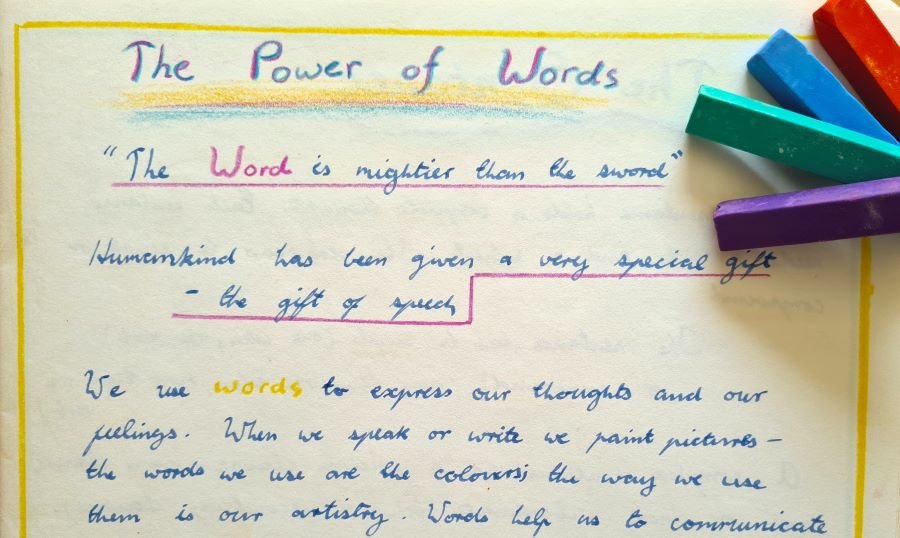 The Power of Words
"The Word is mightier than the sword"
Humankind has been given a very special gift
- the gift of speech
We use words to express our thoughts and our
feelings. When we speak or write we paint pictures –
the words we use are the colours; the way we use
them is our artistry. Words help us to communicate